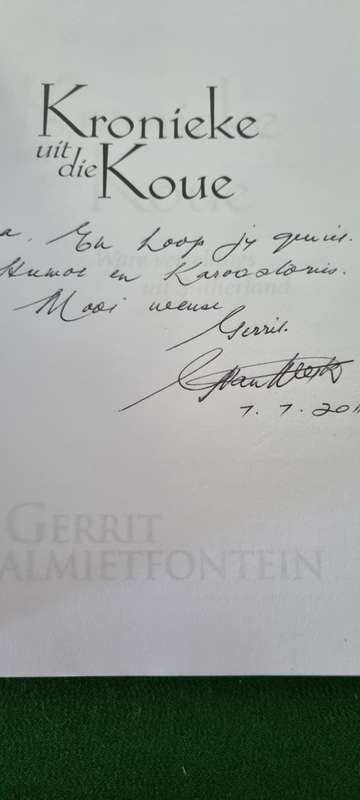 Kronieke
uit die Koue
a. Ek hoop jy geniet
Humor en Karoostories.
Mooi wense
Gerrit.
7. 7. 201
GERRIT
ALMIETFONTEIN